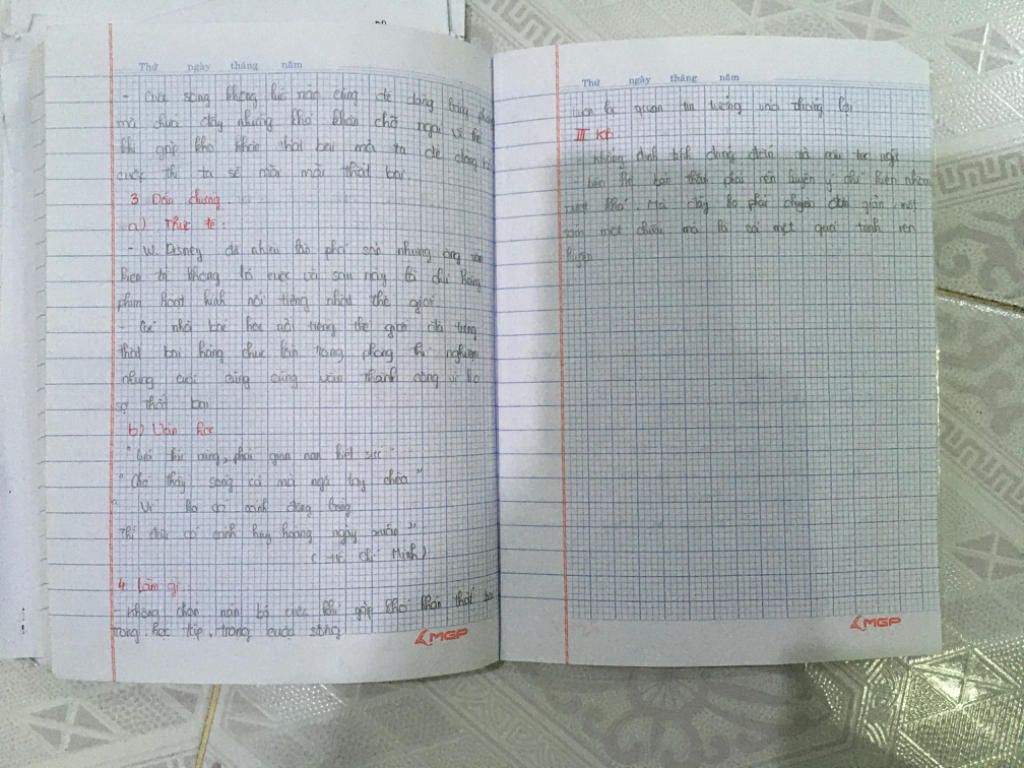 Thứ ngày tháng năm
- Cuộc sống không lúc nào cũng dễ dàng
mà chứa đầy những khó khăn chở ngại vì thế
khi gặp khó khăn thất bại mà ta dễ dàng bỏ
cuộc thì ta sẽ mãi mãi thất bại.
3 Dẫn chứng
a) Thực tế:
- W. Disney đã nhiều lần phá sản nhưng ông vẫn
kiên trì không bỏ cuộc và sau này là chủ hãng
phim hoạt hình nổi tiếng nhất thế giới
- Các nhà bác học nổi tiếng thế giới đã từng
thất bại hàng chục lần trong phòng thí nghiệm
nhưng cuối cùng cũng vẫn thành công vì ko
sợ thất bại
b) Văn học
phải gian nan hết sức"
"Chớ thấy sóng cả mà ngã tay chèo"
" Ví ko có cảnh đông
Thì đâu có cảnh huy hoàng ngày xuân"
( Hồ Chí Minh)
4. Làm gì:
- Không chán nản bỏ cuộc khi gặp khó khăn thất bại
trong học tập, trong cuộc sống
MGP
Thứ ngày tháng năm
Luôn lạc quan tin tưởng vào thắng lợi
III Kb
- Khẳng định tính đúng đắn của câu tục ngữ
- Liên hệ bản thân phải rèn luyện ý chí kiên nhẫn
vượt khó. Mà đây ko phải chuyện đơn giản một
sớm một chiều mà là cả một quá trình rèn
luyện
MGP